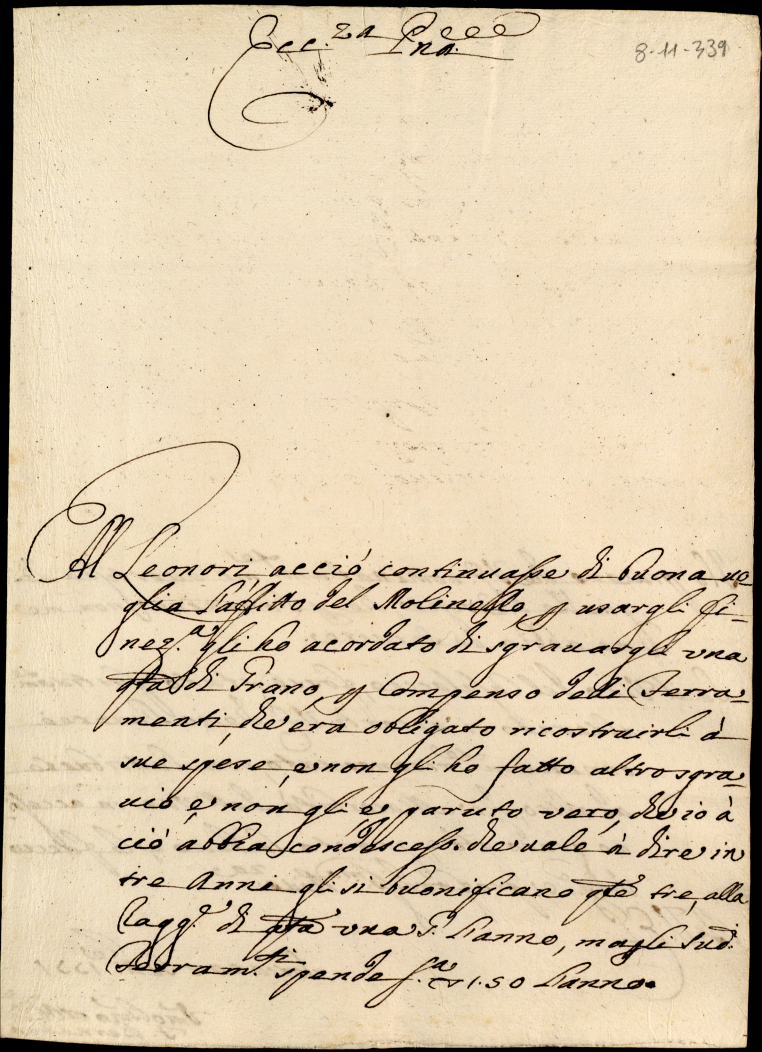 Ecc.za Pna.
8-11-339
All Leonori acciò continuasse di buona vo=
glia l'affitto del Molinello, p usargli fi=
nez.a gli ho acordato di sgravargli una
qta di Grano, p Compenso dedi Serra=
menti, che era obligato ricostruirli à
sue spese, e non gli ho fatto altro sgra=
vio, e non gli è paruto vero, che io à
ciò abbia condescess. che vale à dire in
tre Anni gli si buonificano qte tre, alla
ragg.e di qta una P. l'anno, ma gli sud.
Serram.ti spende 1.50 l'anno.